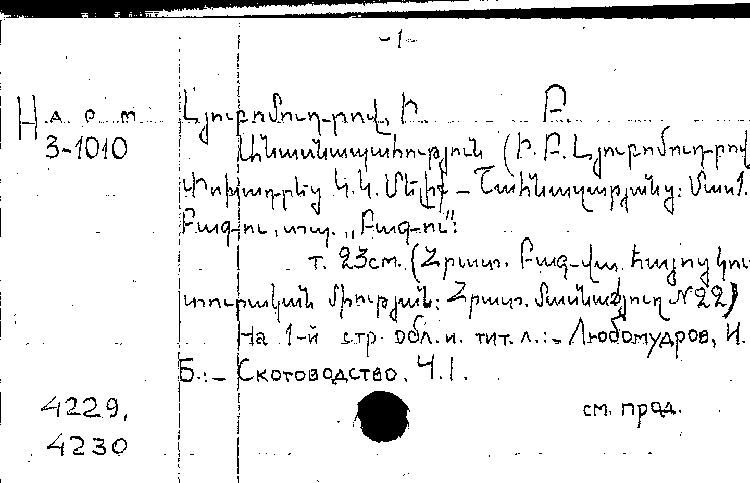 -1-
Нарт Լյուբոմուդրով, Ի. Բ.
3-1010 Անասնապահություն (Ի. Բ. Լյուբոմուդրով
Փոխադրեց Կ. Կ. Մելիք-Շահնազարյանց: Մաս 1.
Բագու, տպ. „Բագու":
т. 23см. (Հրատ. Բագ-վա հայոց կուլ
տուրական միության: Հրատ. մասնաճյուղ №22)
На 1-й стр. обл. и. тит. л.: – Любомудров, И.
Б.: – Скотоводство. Ч.1.
4229, см. прод.
4230